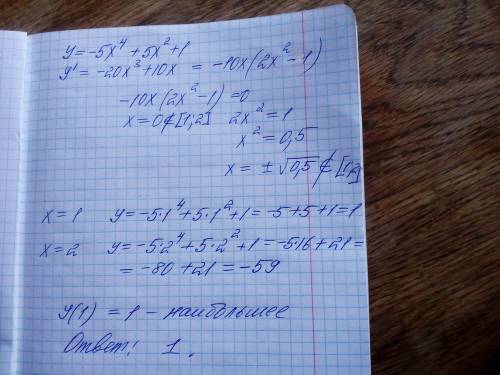 y = -5x⁴ + 5x² + 1
y' = -20x³ + 10x = -10x(2x² - 1)
-10x(2x² - 1) = 0
x = 0 ∉ [1;2] 2x² = 1
x² = 0,5
x = ±√0,5 ∉ [1;2]
x = 1 y = -5·1⁴ + 5·1² + 1 = -5 + 5 + 1 = 1
x = 2 y = -5·2⁴ + 5·2² + 1 = -5·16 + 21 =
= -80 + 21 = -59
y(1) = 1 - наибольшее
Ответ: 1.